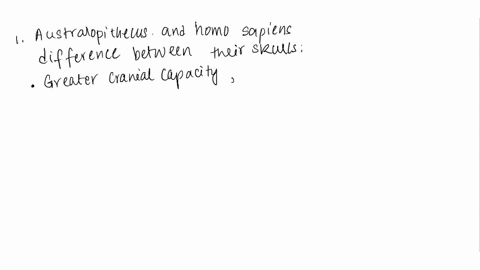 1. Australopithecus and homo sapiens
difference between their skulls:
• Greater cranial capacity ,